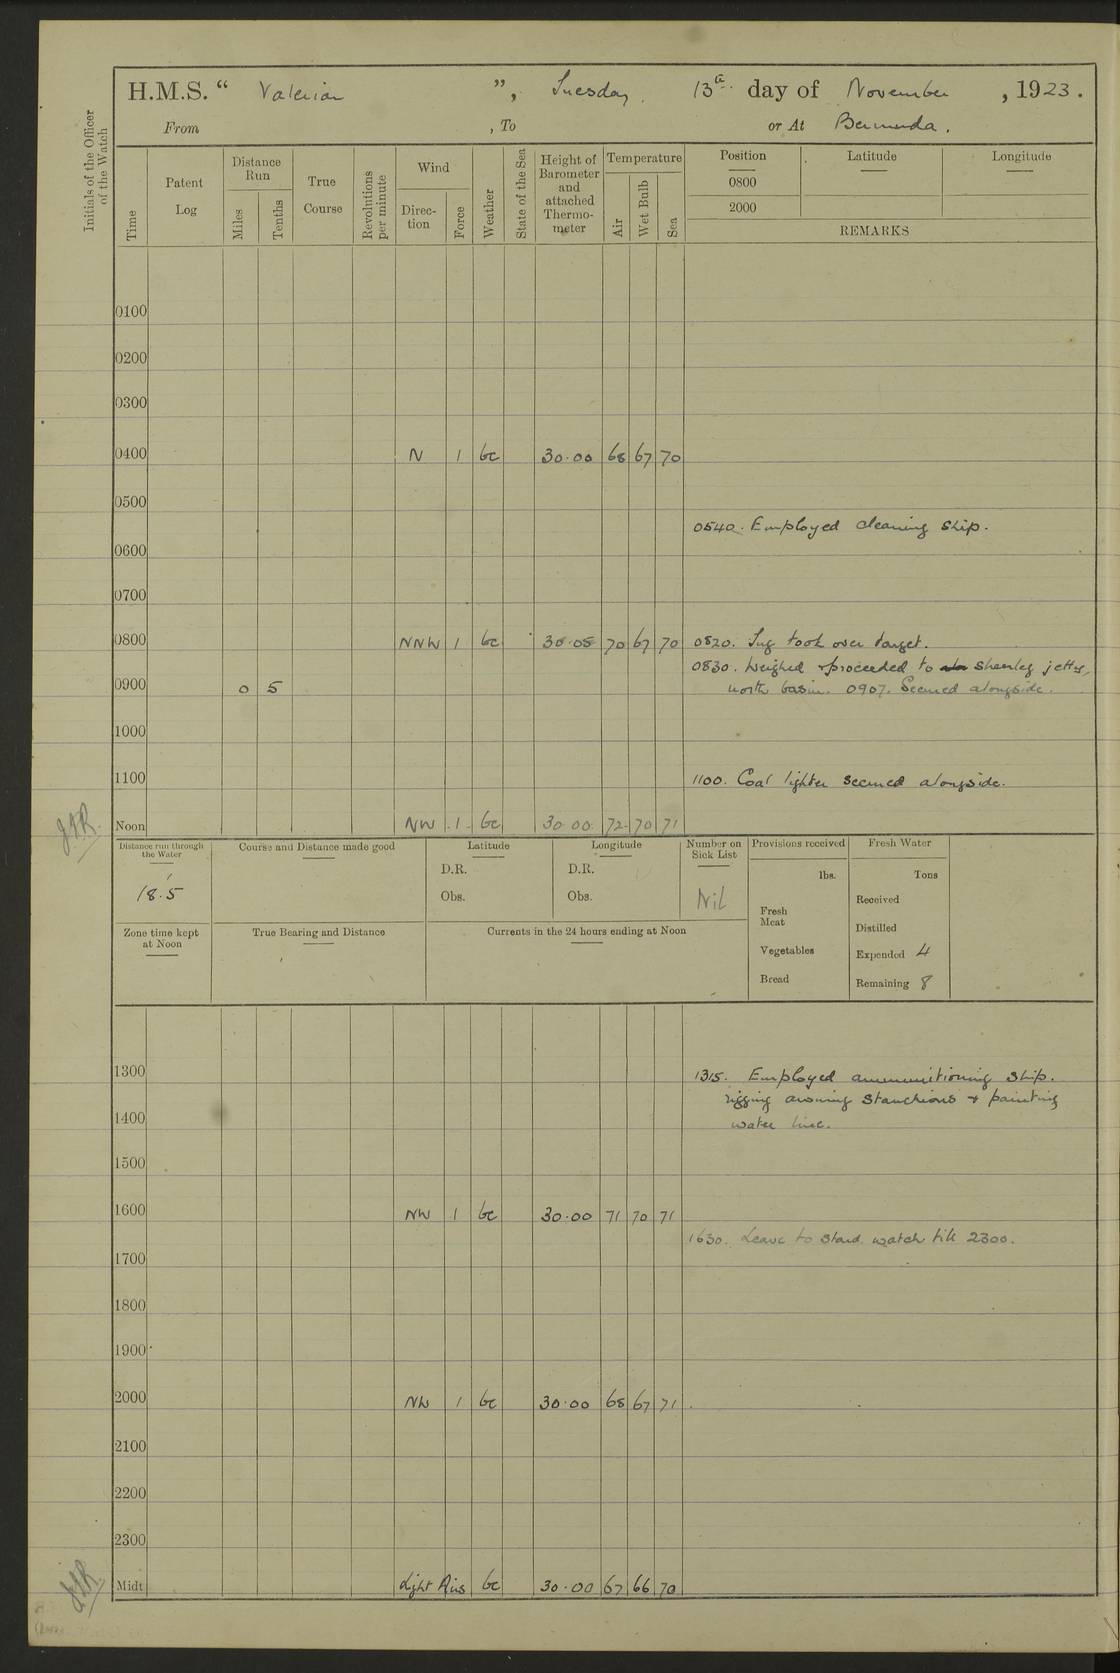 H.M.S. “ Valerian ”, Tuesday, 13th day of November, 1923.
From , To or At Bermuda.
Initials of the Officer of the Watch
Time
Patent Log
Distance Run
Miles
Tenths
True Course
Revolutions per minute
Wind
Direc-tion
Force
Weather
State of the Sea
Height of Barometer and attached Thermo-meter
Temperature
Air
Wet Bulb
Sea
Position Latitude Longitude
0800
2000
REMARKS
0100
0200
0300
0400 N 1 bc 30.00 68 67 70
0500
0540. Employed cleaning ship.
0600
0700
0800 NNW 1 bc 30.05 70 67 70 0820. Tug took over target.
0830. Weighed & proceeded to sheerleg jetty,
0900 0 5 north basin. 0907. Secured alongside.
1000
1100 1100. Coal lighter secured alongside.
Noon NW 1 bc 30.00 72 70 71
Distance run through the Water
18.5
Course and Distance made good
Latitude
D.R.
Obs.
Longitude
D.R.
Obs.
Number on Sick List
Nil
Provisions received
lbs.
Fresh Meat
Vegetables
Bread
Fresh Water
Tons
Received
Distilled
Expended 4
Remaining 8
Zone time kept at Noon
True Bearing and Distance
Currents in the 24 hours ending at Noon
1300 1315. Employed ammunitioning ship.
rigging awning stanchions & painting
1400 water line.
1500
1600 NW 1 bc 30.00 71 70 71
1630. Leave to Starbd. watch till 2300.
1700
1800
1900
2000 NW 1 bc 30.00 68 67 71
2100
2200
2300
Midt Light Airs bc 30.00 67 66 70